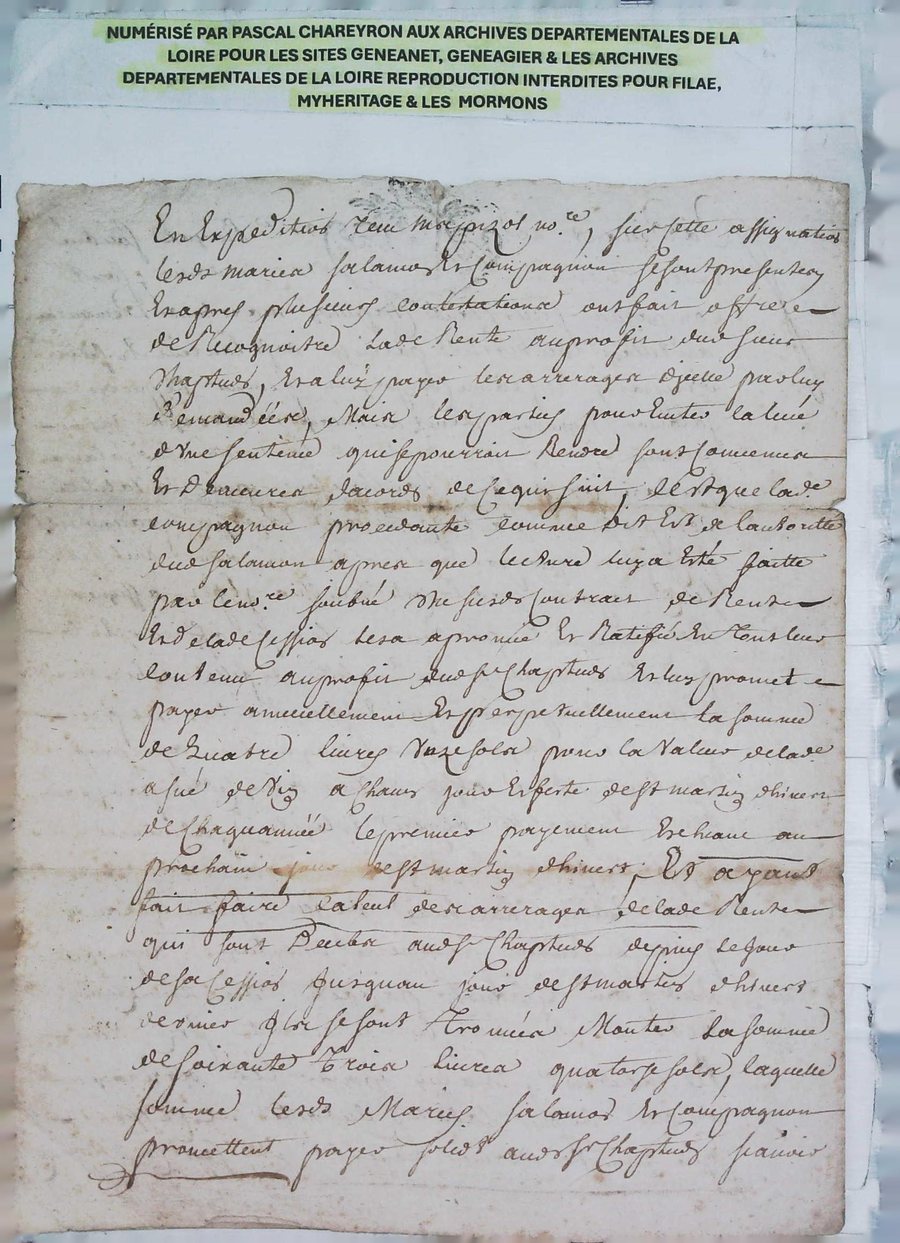 NUMÉRISÉ PAR PASCAL CHAREYRON AUX ARCHIVES DEPARTEMENTALES DE LA
LOIRE POUR LES SITES GENEANET, GENEAGIER & LES ARCHIVES
DEPARTEMENTALES DE LA LOIRE REPRODUCTION INTERDITES POUR FILAE,
MYHERITAGE & LES MORMONS
En Expedition no.re, sur cette assignation
lesds mariea salamon Et Compagnon se sont presentez
Et apres plusieurs contestationa ont fait offre
de Recognoitre lade Rente au profit dud sieur
Chaptuds, Et a luy payer lea arreragea d'jcelle par luy
demandéea, Maia les parties pour Eviter la
d'vne sentence qui se pourroit Rendre sont
Et Demeurea dacords de ce qui suit, C'est que lade
compagnon procedante comme dit Est de l'authorité
dud salamon aprea que lecture luy a Esté faitte
par le no.re soubné du susds Contrait de Rente
Et de lade Cession lesa aprouvé Et Ratifié En tout leur
contenu au profit dud sr Chaptuds Et luy promet
payer annuellement Et perpetuellement la somme
de Quatre livres vnze solz pour la valeur de lade
asné de vin a Chaun jour Et feste de st martin dhivert
de Chaque année le premier payement Escheant au
prochain jour de st martin dhivert, Et ayant
fait faire Calcul dea arreragea de lade Rente
qui sont Deubz auds sr Chaptuds depuis le jour
de sa Cession jusquau jour de st martin dhivert
dernier Ilz se sont Trouvéa Monter la somme
de soixante Troia livrea quatorze solz, laquelle
somme lesds Mariés salamon Et Compagnon
promettent payer solidt auds sr Chaptuds scauoir